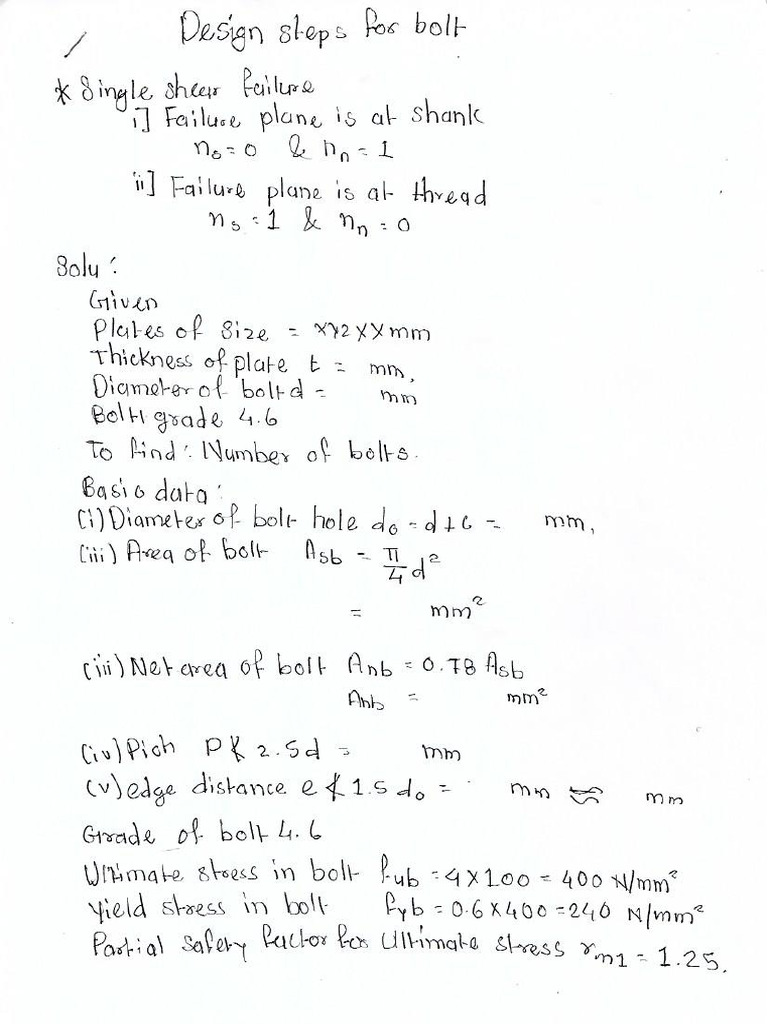 Design steps for bolt
* Single shear failure
i] Failure plane is at shank
n_s = 0 & n_n = 1
ii] Failure plane is at thread
n_s = 1 & n_n = 0
Solu :
Given
Plates of Size = xx2xx mm
Thickness of plate t = mm,
Diameter of bolt d = mm
Bolt grade 4.6
To find : Number of bolts.
Basic data :
(i) Diameter of bolt hole d_o = d + c = mm,
(iii) Area of bolt A_sb = π/4 d²
= mm²
(iii) Net area of bolt A_nb = 0.78 A_sb
A_nb = mm²
(iv) Pich P ≮ 2.5d = mm
(v) edge distance e ≮ 1.5 d_o = mm ≈ mm
Grade of bolt 4.6
Ultimate stress in bolt f_ub = 4 x 100 = 400 N/mm²
Yield stress in bolt f_yb = 0.6 x 400 = 240 N/mm²
Partial Safety factor for Ultimate stress r_m1 = 1.25.